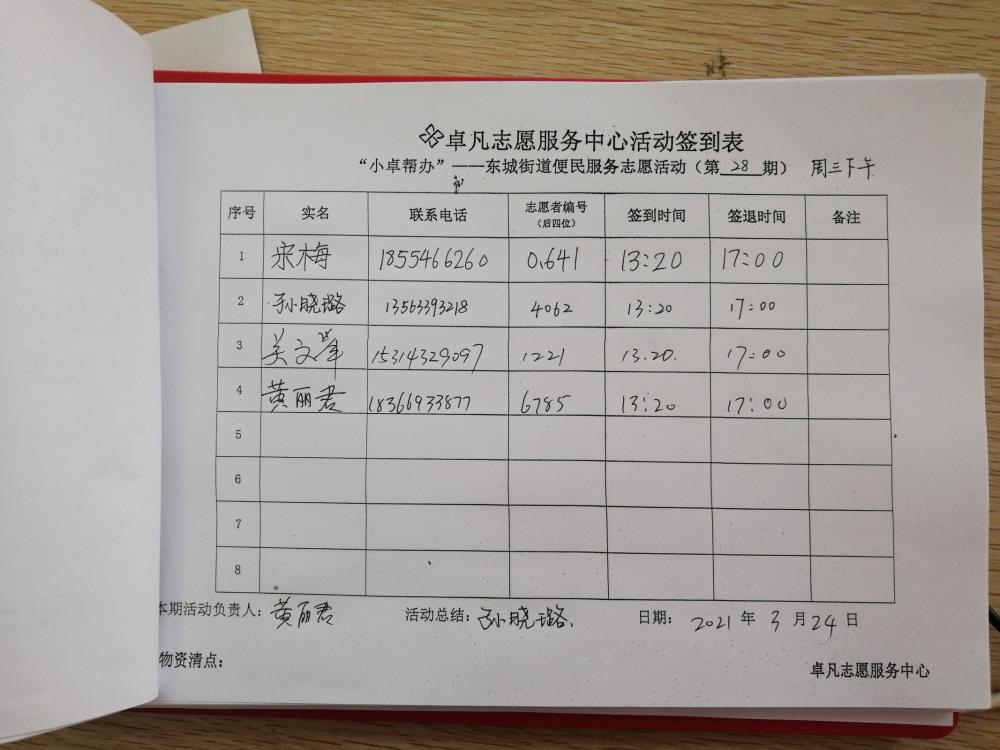 卓凡志愿服务中心活动签到表
“小卓帮办”——东城街道便民服务志愿活动（第 28 期） 周三下午
序号 实名 联系电话 志愿者编号（后四位） 签到时间 签退时间 备注
1 宋梅 1855466260 0641 13:20 17:00
2 孙晓璐 13563393218 4062 13:20 17:00
3 文 15314329097 1221 13:20. 17:00
4 黄丽君 18366933877 6785 13:20 17:00
5
6
7
8
本期活动负责人：黄丽君 活动总结：孙晓璐 日期： 2021 年 3 月 24 日
物资清点：
卓凡志愿服务中心